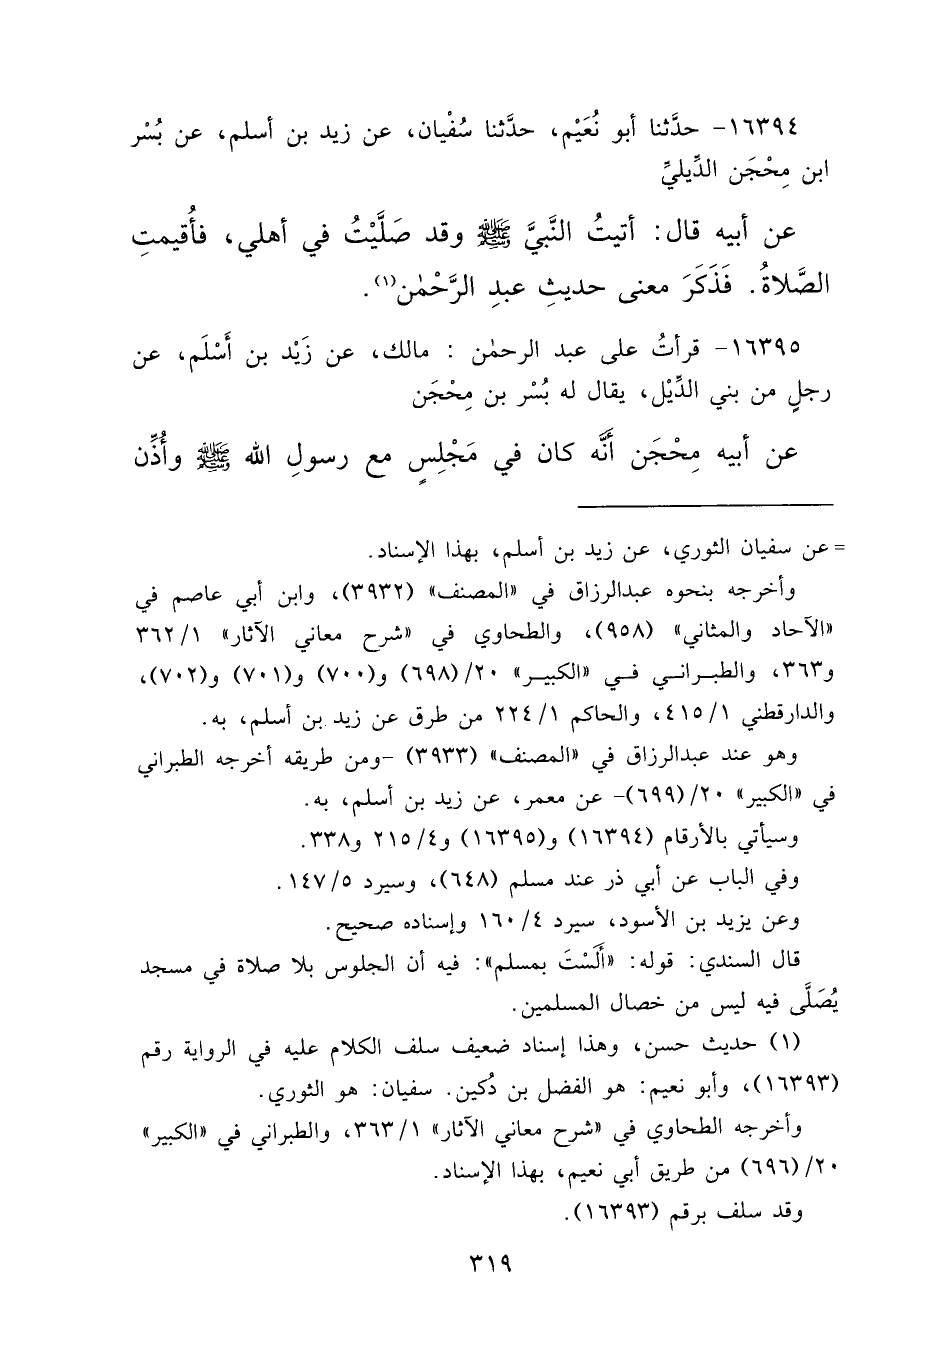 ١٦٣٩٤- حدَّثنا أبو نُعَيْم، حدَّثنا سُفْيان، عن زيد بن أسلم، عن بُسْر
ابن مِحْجَن الدِّيليِّ
عن أبيه قال: أتيتُ النَّبيَّ ﷺ وقد صَلَّيْتُ في أهلي، فأُقيمتِ
الصَّلاةُ. فَذَكَرَ معنى حديثِ عبدِ الرَّحْمٰن(١).
١٦٣٩٥- قرأتُ على عبد الرحمٰن : مالك، عن زَيْد بن أَسْلَم، عن
رجلٍ من بني الدِّيْل، يقال له بُسْر بن مِحْجَن
عن أبيه مِحْجَن أنَّه كان في مَجْلِسٍ مع رسولِ الله ﷺ وأُذِّن
= عن سفيان الثوري، عن زيد بن أسلم، بهذا الإسناد.
وأخرجه بنحوه عبدالرزاق في «المصنف» (٣٩٣٢)، وابن أبي عاصم في
«الآحاد والمثاني» (٩٥٨)، والطحاوي في «شرح معاني الآثار» ٣٦٢/١
و٣٦٣، والطبـرانـي فـي «الكبيـر» ٢٠/(٦٩٨) و(٧٠٠) و(٧٠١) و(٧٠٢)،
والدارقطني ٤١٥/١، والحاكم ٢٢٤/١ من طرق عن زيد بن أسلم، به.
وهو عند عبدالرزاق في «المصنف» (٣٩٣٣) -ومن طريقه أخرجه الطبراني
في «الكبير» ٢٠/(٦٩٩)- عن معمر، عن زيد بن أسلم، به.
وسيأتي بالأرقام (١٦٣٩٤) و(١٦٣٩٥) و٢١٥/٤ و٣٣٨.
وفي الباب عن أبي ذر عند مسلم (٦٤٨)، وسيرد ١٤٧/٥.
وعن يزيد بن الأسود، سيرد ١٦٠/٤ وإسناده صحيح.
قال السندي: قوله: «أَلَسْتَ بمسلم»: فيه أن الجلوس بلا صلاة في مسجد
يُصَلَّى فيه ليس من خصال المسلمين.
(١) حديث حسن، وهذا إسناد ضعيف سلف الكلام عليه في الرواية رقم
(١٦٣٩٣)، وأبو نعيم: هو الفضل بن دُكين. سفيان: هو الثوري.
وأخرجه الطحاوي في «شرح معاني الآثار» ٣٦٣/١، والطبراني في «الكبير»
٢٠/(٦٩٦) من طريق أبي نعيم، بهذا الإسناد.
وقد سلف برقم (١٦٣٩٣).
٣١٩